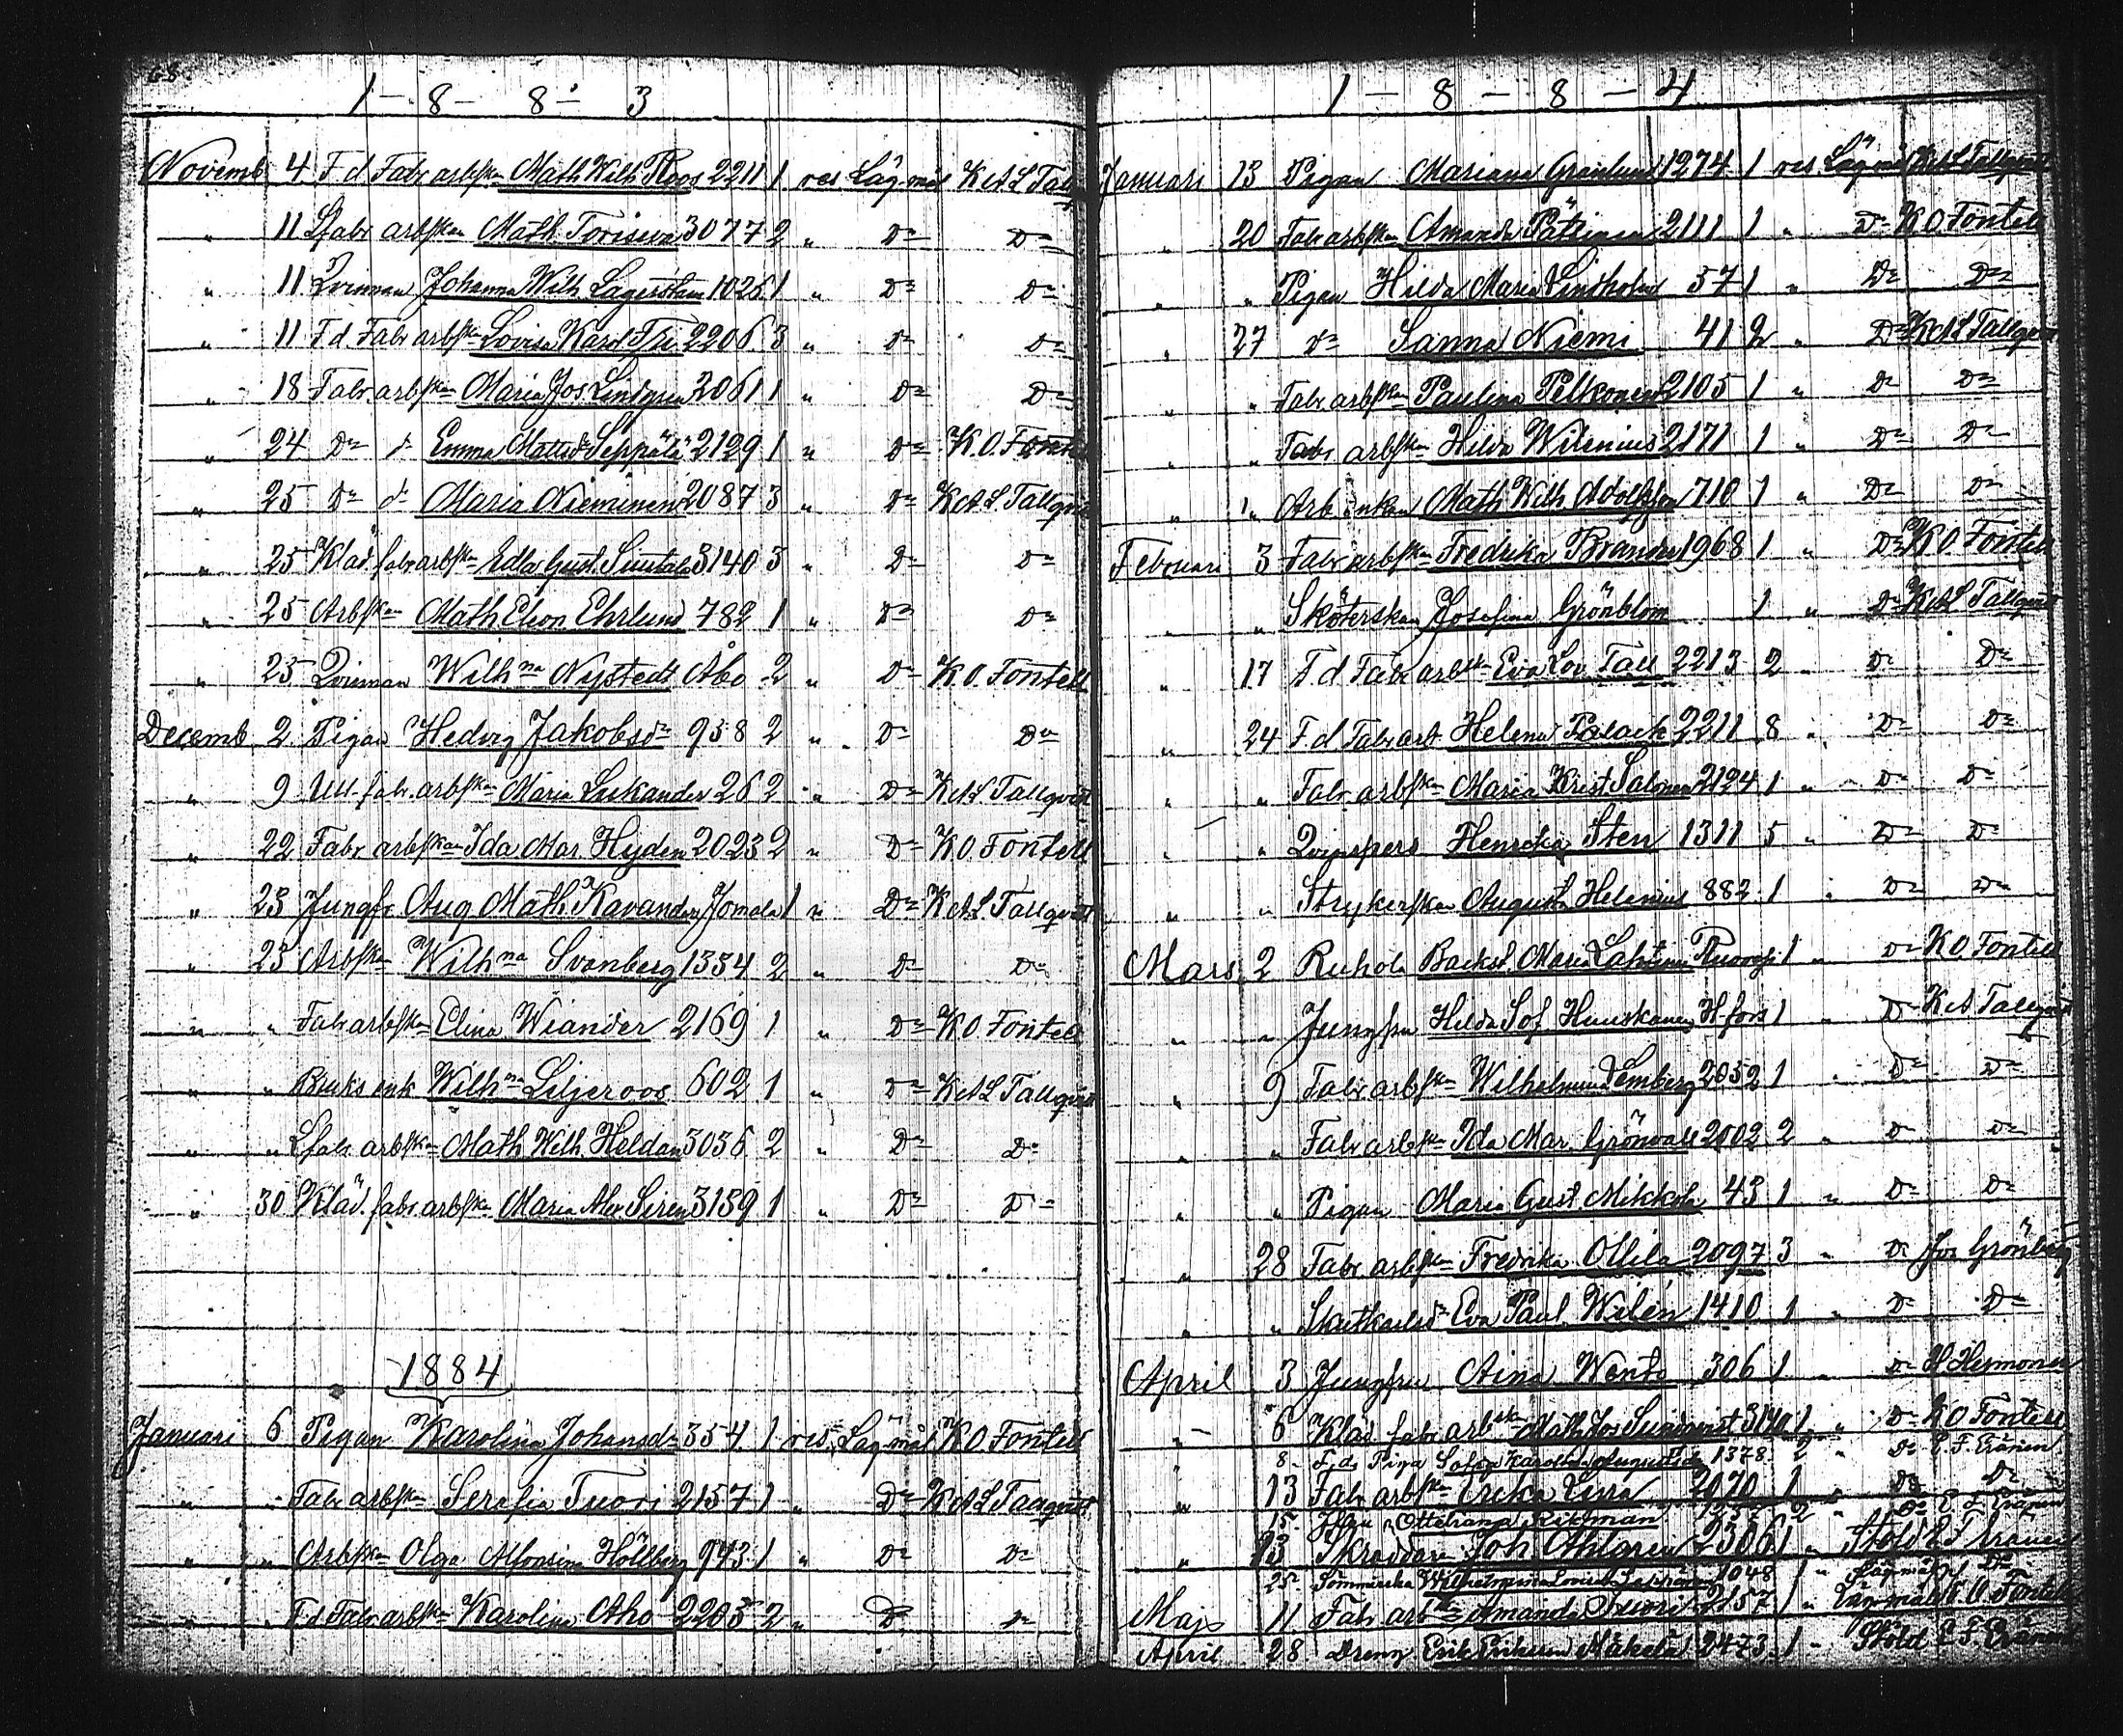 68
1 - 8 - 8 - 3
Novemb 4 F d Fabr arbskan Math Wilh Roos 2211 1 ves Lägmål K A L Tallqv
" 11 Lfabr arbskan Math Toriseva 3077 2 " Do Do
" 11 Qvinnan Johanna Wilh Lagerstam 1026 1 " Do Do
" 11 F d Fabr arbskn Lovisa Karol Fri 2206 3 " Do Do
" 18 Fabr. arbskan Maria Jos Lindgren 2061 1 " Do Do
" 24 Do do Emma Mattsdr Seppälä 2129 1 " Do K. O. Fontell
" 25 Do do Maria Nieminen 2087 3 " Do K A L Tallqvist
" 25 Kläd. fabr arbskn Edla Gust. 3140 3 " Do Do
" 25 Arbskan Math Ehrlund 782 1 " Do Do
" 25 Qvinnan Wilhna Nystedt Åbo 2 " Do K. O. Fontell
Decemb 2 Pigan Hedvig Jakobsdr 958 2 " Do Do
" 9 Ull. fabr. arbskn Maria Laskander 26 2 " Do K A L Tallqvist
" 22 Fabr arbskan Ida Mar. Hyden 2023 2 " Do K O. Fontell
" 23 Jungfr Aug Math Kavander Jomala 1 " Do K A L Tallqvist
" 23 Arbskan Wilhna Svanberg 1354 2 " Do Do
" " Fabr arbskn Elina Wiander 2169 1 " Do K O Fontell
" " Bruks enk Wilhna Liljeroos 602 1 " Do K A L Tallqvist
" " Lfabr arbskan Math Wilh. Heldan 3036 2 " Do Do
" 30 Kläd. fabr arbskn Maria Alex Siren 3159 1 " Do Do
1884
Januari 6 Pigan Karolina Johansdr 354 1 ves Lägmål K O Fontell
" " Fabr arbskn Serafia Tuori 2157 1 " Do K A L Tallqvist
" " Arbskan Olga Alfonsina Hollberg 943 1 " Do Do
" " F d Fabr arbskn Karolina Aho 2205 2 " Do Do
1 - 8 - 8 - 4
Januari 13 Pigan Mariana Grönlund 1274 1 ves Lägmål K A L Tallqvist
" 20 Fabr arbskan Amanda Pätinen 2111 1 " Do K O Fontell
" " Pigan Hilda Maria Lindholm 57 1 " Do Do
" 27 do Sanna Niemi 41 2 " Do K A L Tallqvist
" " Fabr arbskan Paulina Pelkonen 2105 1 " Do Do
" " Fabr arbskn Hilda Wilenius 2171 1 " Do Do
" " Arb enkan Math Wilh Adolfsson 710 1 " Do Do
Februari 3 Fabr arbskan Fredrika Brander 1968 1 " Do K O Fontell
" " Sköterskan Josefina Grönblom 1 " Do K A L Tallqvist
" 17 F d Fabr arbsk Eva Lov. Tall 2213 2 " Do Do
" 24 F d Fabr arb Helena Polack 2211 8 " Do Do
" " Fabr arbskn Maria Krist Salonen 2124 1 " Do Do
" " Qvinspers Henrika Sten 1311 5 " Do Do
" " Strykerskan Augusta Helenius 882 1 " Do Do
Mars 2 Ruhola Backst. Maria Lahtinen 1 " Do K O. Fontell
" " Jungfru Hilda Sof. H fors 1 " Do K A Tallqvist
" 9 Fabr arbskn Wilhelmina Lemberg 2052 1 " Do Do
" " Fabr arbskn Ida Mar. Grönvall 2002 2 " Do Do
" " Pigan Maria Gust Mikkola 43 1 " Do Do
" 28 Fabr arbskn Fredrika Ollila 2097 3 " Do Jos Grönberg
" " Eva Paul. Wilén 1410 1 " Do Do
April 3 Jungfru Aina Wento 306 1 " Do H Hermonen
" 6 Kläd fabr arbskn Math Jos 3140 1 " Do K O Fontell
8. F. d. Piga Sofia Karolina Augustsdr 1378 2 " Do E. F. Eränen
" 13 Fabr arbskn Erika 2070 1 " Do Do
15. Ottiliana Rikman 1257 2 " Do E F Eränen
" 23 Skräddaren Joh Ahlgren 2306 1 " Stöld E F Eränen
25. Sömmerska Wilhelmina Lovisa 1048 1 " Lägmål Do
Maj 11 Fabr arbskn Amanda Tuori 2157 1 " Lägmål K O Fontell
April 28 Dreng Erik Eriksson Mäkelä 2473 1 " Stöld E F Eränen